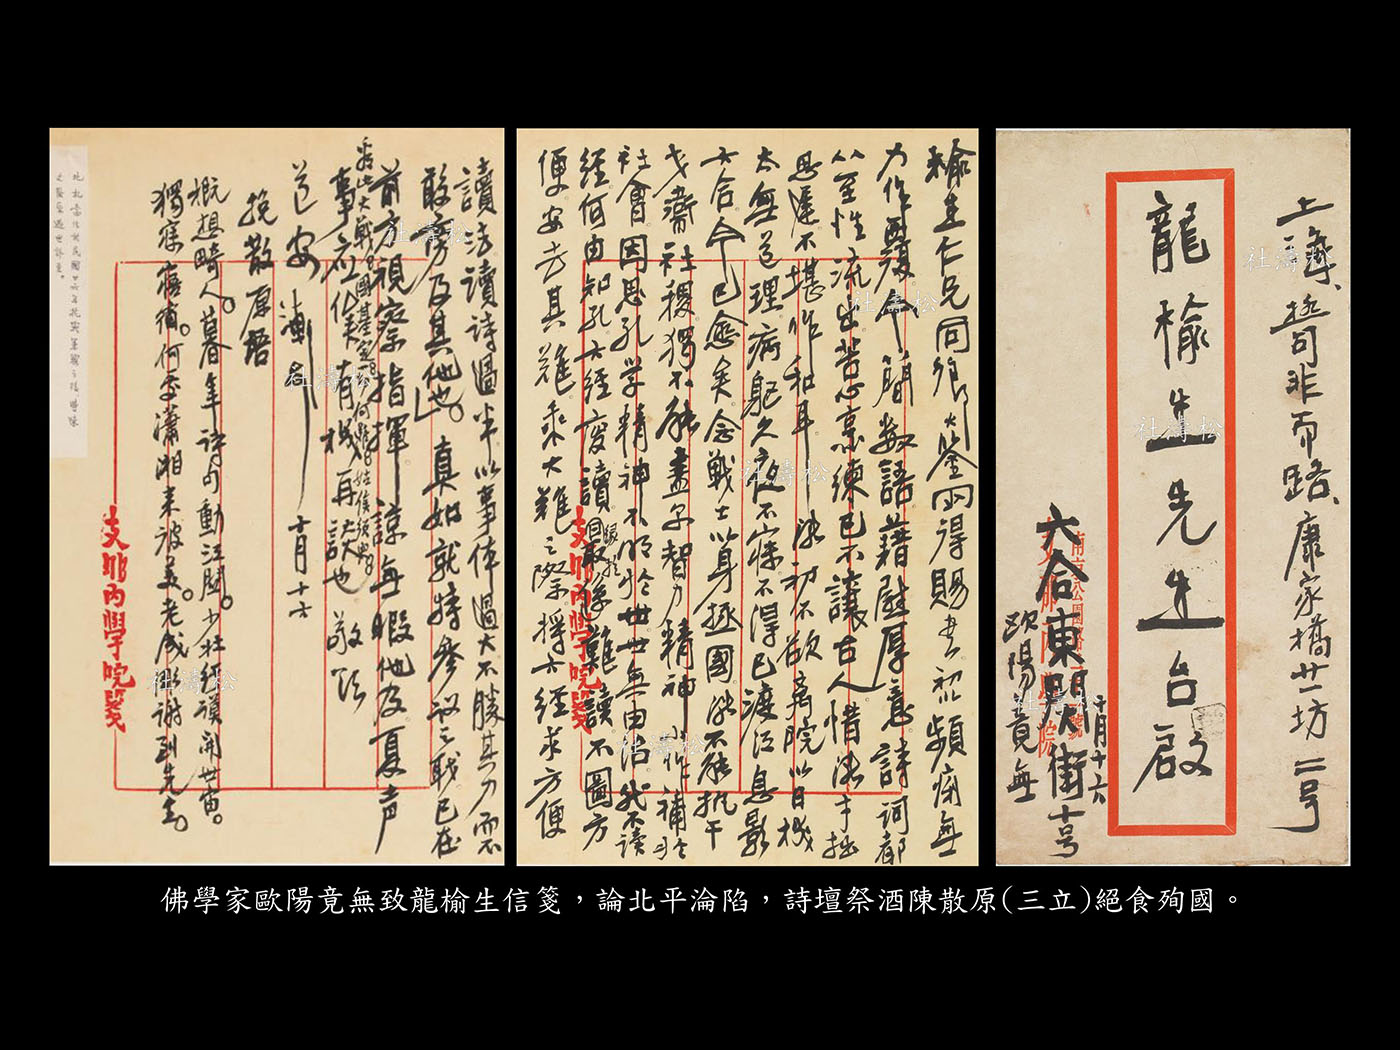 上海、極司非而路、康家橋廿一坊二号
龍榆生先生台啟
六合東門大街十号
歐陽竟無
十月十六
榆生仁兄同鄉大鑒四得賜書初頻病無
力作覆今簡数語藉慰厚意詩词都
从至性流出苦心烹練已不讓古人惜漸手拙
思遲不堪作和耳 漸初不欲离院以日機
太無道理病躯久夜不寐不得已渡江息影
六合今已愈矣念戰士以身拯國漸不能执干
戈衛社稷獨不能盡学智力精神小作補苴
社會因思孔学精神不明於世世無由治我不讀
經何由知孔六經废讀 難讀不圖方
便安去其難乘大難之際擇六經求方便
讀法讀詩過半以事体過大不勝其力而不
敢旁及其他也。真如就特參议之职已在
前方視察指揮諒無暇他及夏声
事应俟有機再談也 敬頌
道安 漸 十月十六
看此大戰
挽散原語
概想畸人。暮年詩句動江關。少壯經謨開世宙。
獨寐寤宿。何處瀟湘来波矣。老成彫謝到先生。
支那內學院箋
支那內學院箋
社濤松
佛學家歐陽竟無致龍榆生信箋，論北平淪陷，詩壇祭酒陳散原(三立)絕食殉國。